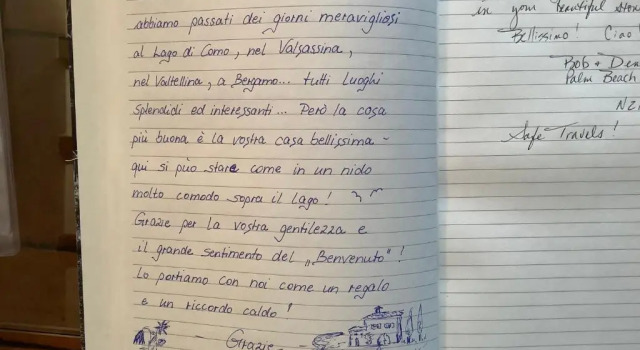 abbiamo passati dei giorni meravigliosi
al Lago di Como, nel Valsassina,
nel Valtellina, a Bergamo... tutti luoghi
splendidi ed interessanti... Però la cosa
più buona è la vostra casa bellissima -
qui si può stare come in un nido
molto comodo sopra il lago!
Grazie per la vostra gentilezza e
il grande sentimento del „Benvenuto"!
Lo portiamo con noi come un regalo
e un riccordo caldo!
Grazie
in your beautiful
Bellissimo! Ciao!
Bob +
Palm Beach
Safe Travels!